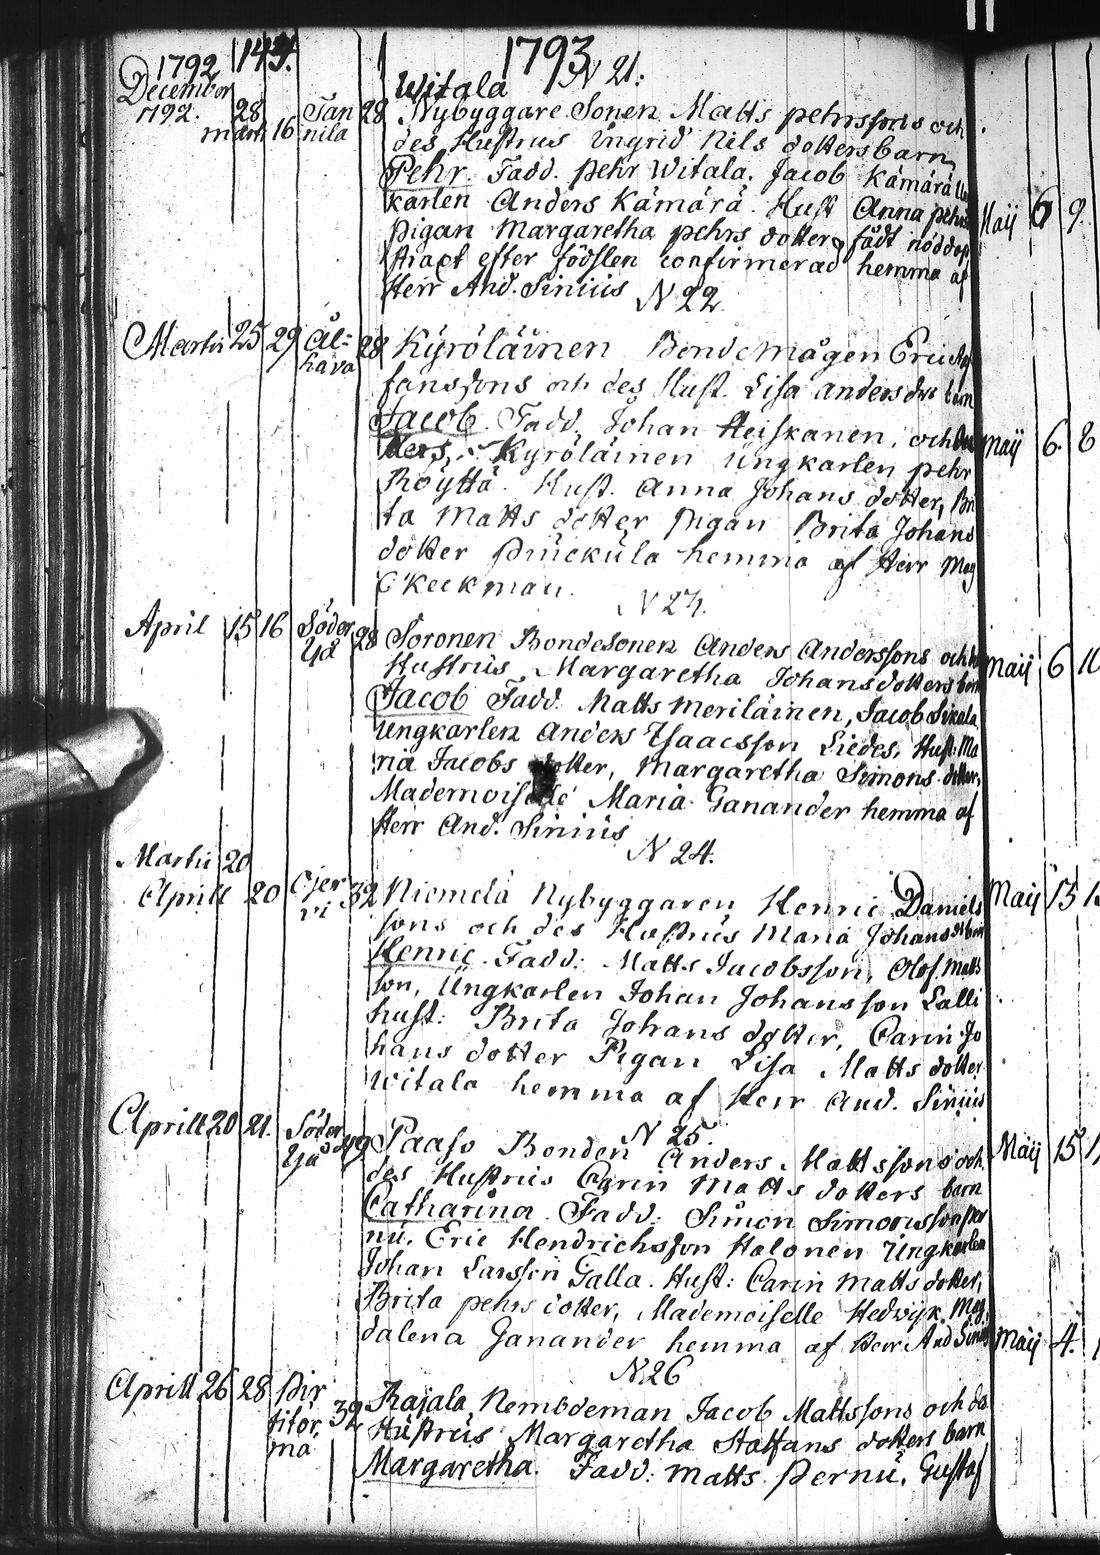 1792 143. 1793
December N 21:
1792. 28 Tan 28 Witala
martii 16 nila Nybyggare Sonen Matts pehrssons och
des Hustrus Ingrid Nils dotters barn
Pehr. Fadd. pehr Witala. Jacob Kämärä
karlen Anders Kämärä. Hust Anna pehrs
pigan Margaretha pehrs dotter, fådt nöddop
straxt efter födslen confirmerad hemma af
Herr And. Sinius
N 22.
Martii 25 29 Al= 28 Kyröläinen BondeMågen Eric
hava fansons och des Hust. Lisa anders drs barn
Jacob. Fadd. Johan Heiskanen, och
Kyröläinen Ungkarlen pehr
Röyttä. Hust. Anna Johans dotter, Bri
ta Matts dotter pigan Brita Johans
dotter pinckula hemma af Herr Mag
Ekeekman.
N 23.
April 15 16 Söder 28 Soronen Bondesonen Anders Anderssons och
Yjå Hustrus Margaretha Johansdotters barn
Jacob Fadd. Matts Meriläinen, Jacob Sikala
Ungkarlen Anders Isaacsson Liedes, Hust: Ma
ria Jacobs dotter, Margaretha Simons dotter,
Mademoiselle Maria Ganander hemma af
Herr And. Sinius
N 24.
Martii 20
Aprill 20 Ojer 32 Niemelä Nybyggaren Henric Daniels
vi sons och des Hustrus Maria Johans drs barn
Henric. Fadd: Matts Jacobsson, Olof Matts
son, Ungkarlen Johan Johansson Lalli
hust: Brita Johans dotter, Carin Jo
hans dotter Pigan Lisa Matts dotter
Witala hemma af Herr And. Sinius
N 25.
Aprill 20 21. Söder 49 Paaso Bonden Anders Mattssons och
Yjå des Hustrus Carin Matts dotters barn
Catharina. Fadd: Simon Simonsson per
nu. Eric Hendrichsson Halonen Ungkarlen
Johan Larsson Galla. Hust: Carin Matts dotter,
Brita pehrs dotter, Mademoiselle Hedwijk Mag
dalena Ganander hemma af Herr And Sinius
N 26
Aprill 26 28 Pir 39 Rajala Nembdeman Jacob Mattssons och des
titör Hustrus Margaretha Staffans dotters barn
ma Margaretha. Fadd: Matts Pernu, Gustaf
Maij 6 9.
Maij 6. 8
Maij 6 10
Maij 15
Maij 15
Maij 4.